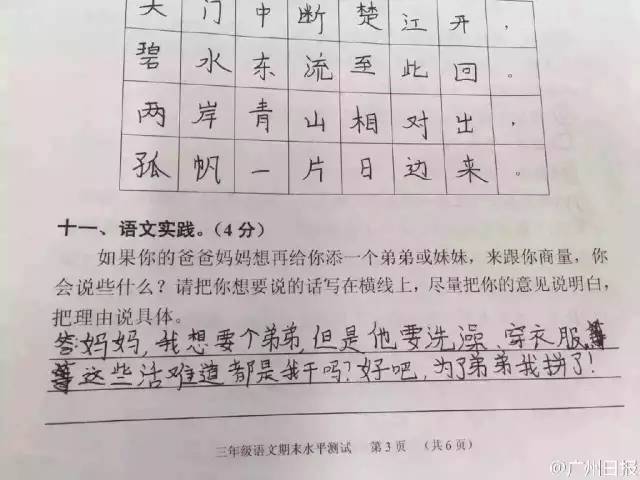 天门中断楚江开，
碧水东流至此回。
两岸青山相对出，
孤帆一片日边来。
十一、语文实践。（4分）
如果你的爸爸妈妈想再给你添一个弟弟或妹妹，来跟你商量，你
会说些什么？请把你想要说的话写在横线上，尽量把你的意见说明白，
把理由说具体。
答:妈妈，我想要个弟弟，但是他要洗澡、穿衣服
这些活难道都是我干吗？好吧，为了弟弟我拼了！
三年级语文期末水平测试 第3页 （共6页）
@广州日报